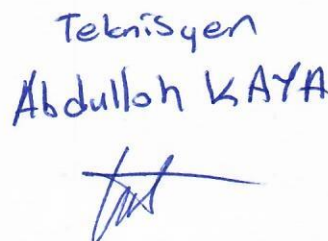 Teknisyen
Abdulloh KAYA